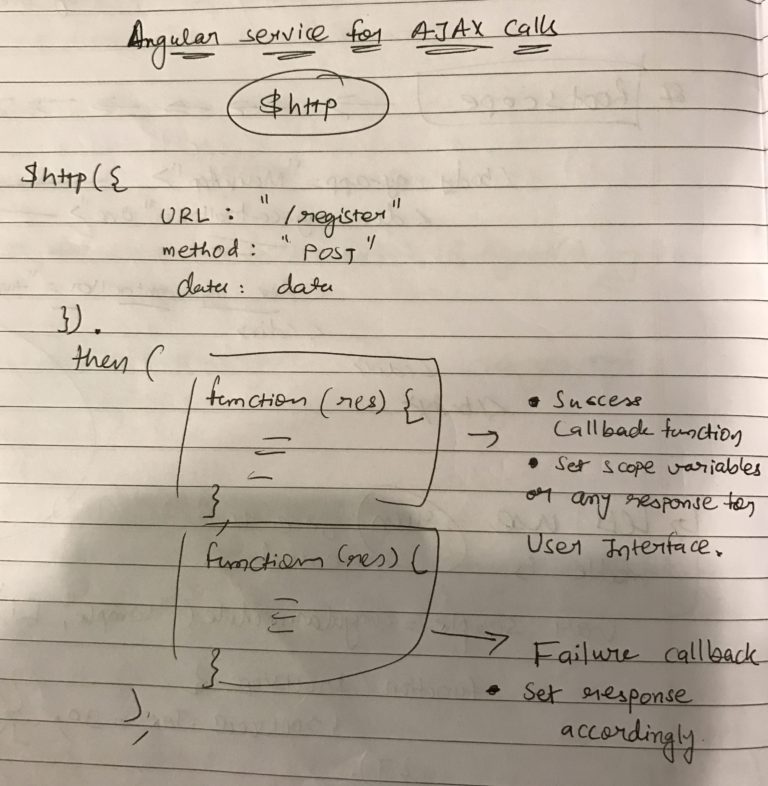 Angular service for AJAX calls
$http
$http({
URL : "/register"
method : "POST"
data : data
}).
then (
function (res) {
}
,
function (res) {
}
);
→ • Success
Callback function
• Set scope variables
or any response for
User Interface.
→ Failure callback
• Set response
accordingly.